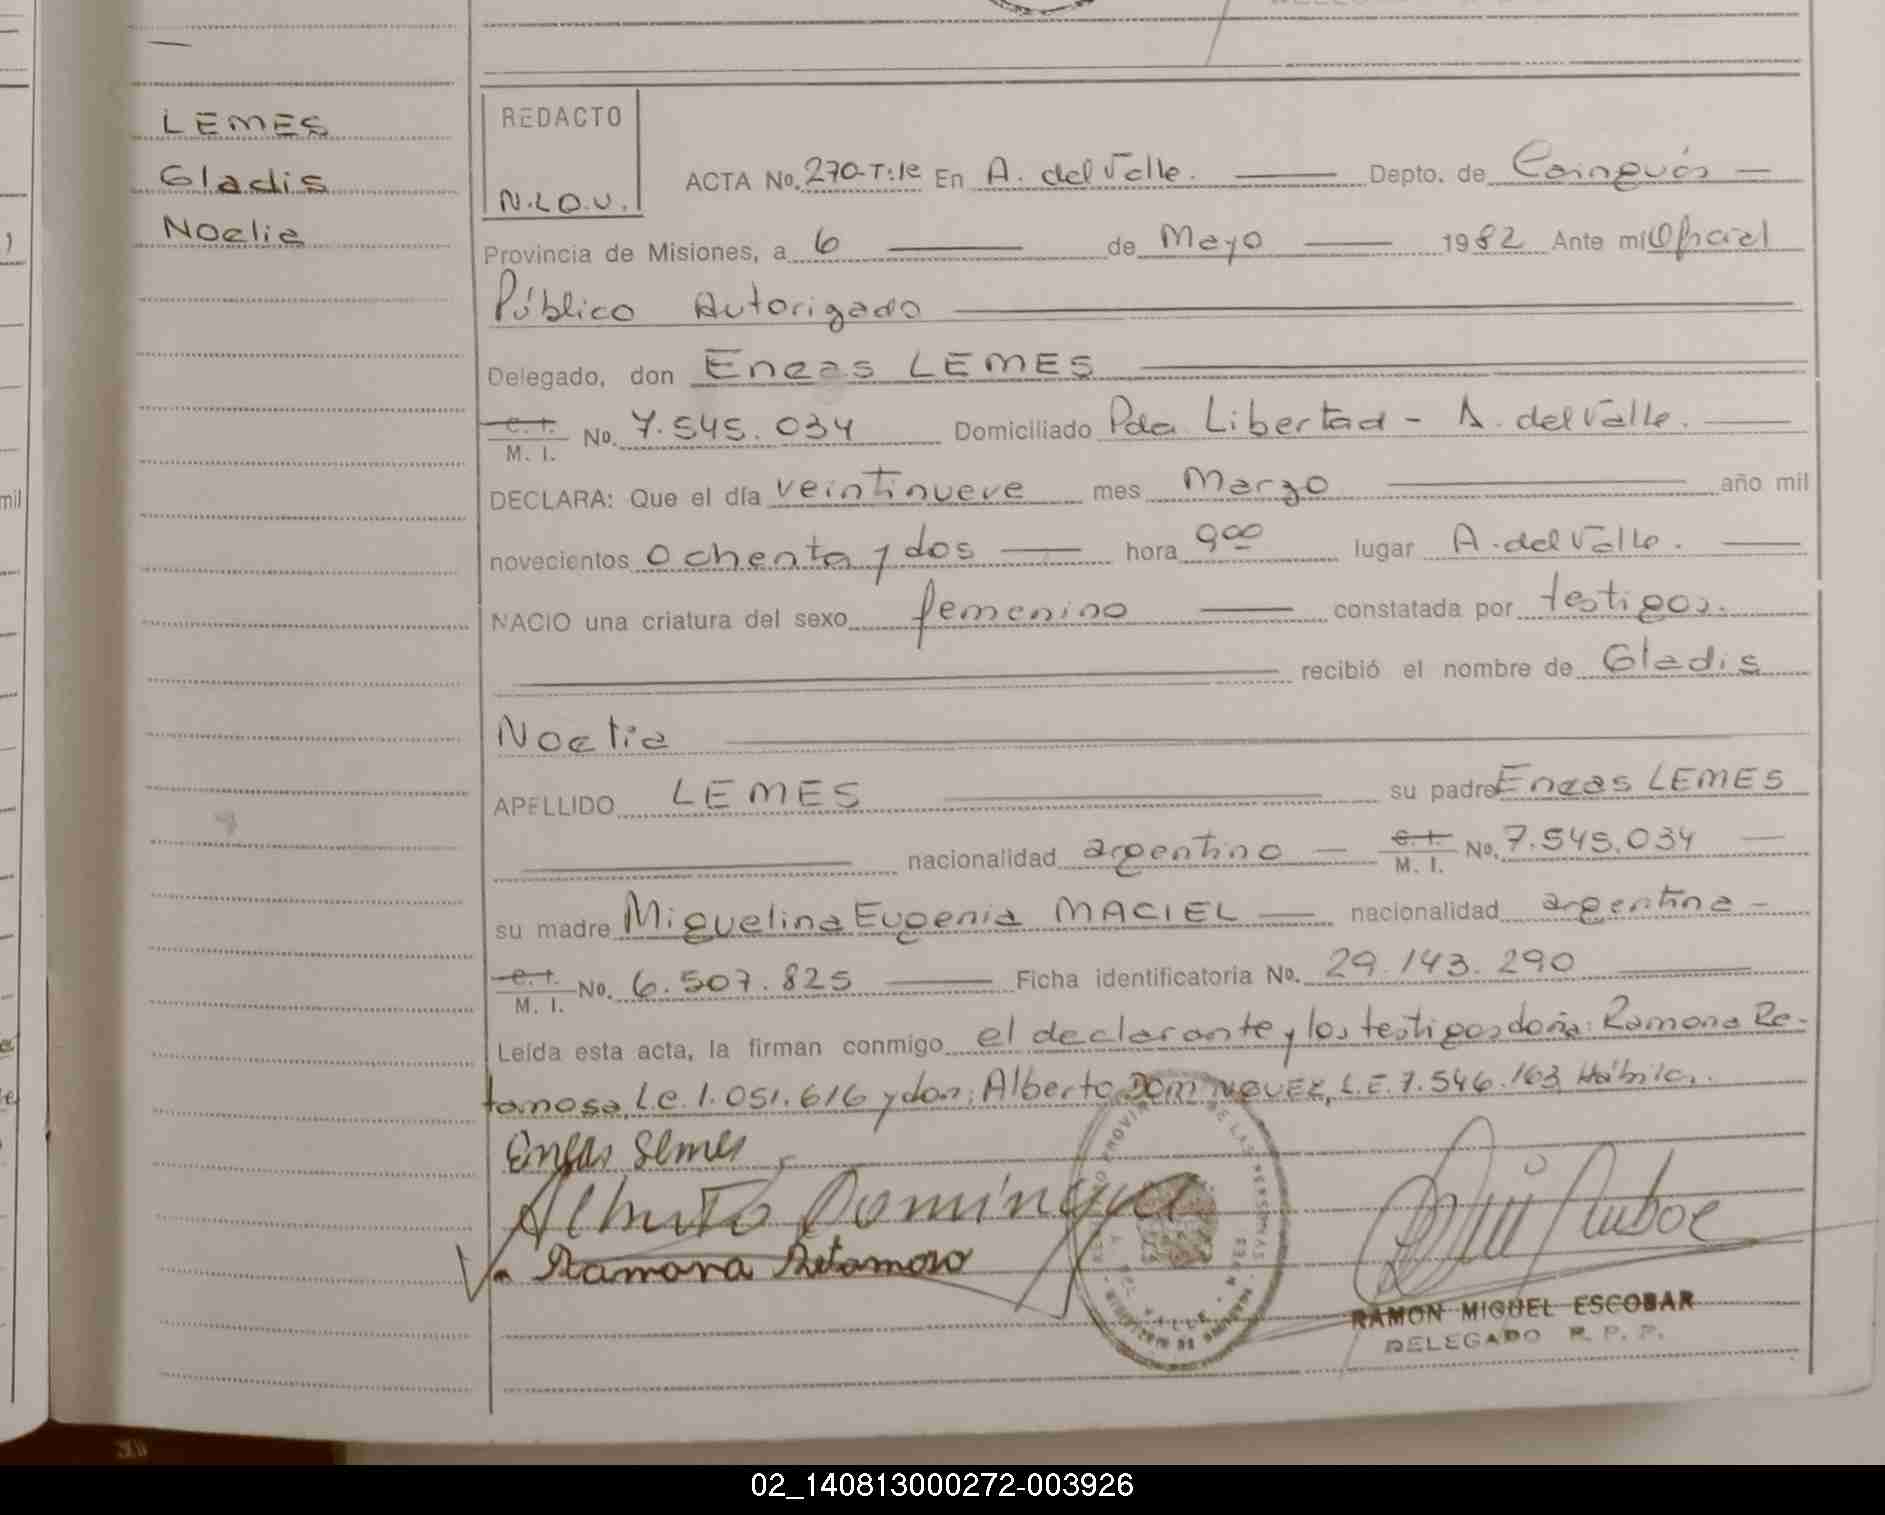 LEMES
Gladis
Noelia
REDACTO
N.L.D.V.
ACTA No. 270-T:1e En A. del Valle. Depto. de Cainguás
Provincia de Misiones, a 6 de Mayo 1982 Ante mi Oficial
Público Autorizado
Delegado, don Eneas LEMES
C. I. M. I. No. 7.545.034 Domiciliado Pda Libertad - A. del Valle.
DECLARA: Que el día veintinueve mes Marzo año mil
novecientos ochenta y dos hora 9 00 lugar A. del Valle.
NACIO una criatura del sexo femenino constatada por testigos.
recibió el nombre de Gladis
Noelia
APELLIDO LEMES su padre Eneas LEMES
nacionalidad argentino C. I. M. I. No. 7.545.034
su madre Miguelina Eugenia MACIEL nacionalidad argentina
C. I. M. I. No. 6.507.825 Ficha identificatoria No. 29.143.290
Leída esta acta, la firman conmigo el declarante y los testigos doña: Ramona Re-
tamoso, L.C. 1.051.616 y don: Alberto DOMINGUEZ, L.E. 7.546.163 Hábiles.
Eneas Lemes
Alberto Dominguez
Ramona Retamoso
RAMON MIGUEL ESCOBAR
DELEGADO R. P. P.
02_140813000272-003926